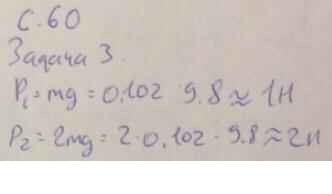 С.60
Задача 3.
P₁=mg=0.102 9.8≈1Н
P₂=2mg=2·0,102·9.8≈2н